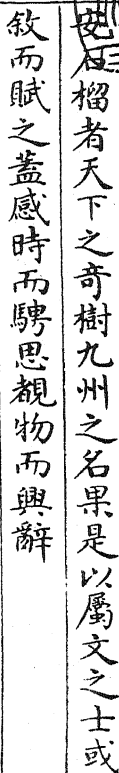 安石榴者天下之奇樹九州之名果是以屬文之士或
敘而賦之蓋感時而騁思覩物而興辭